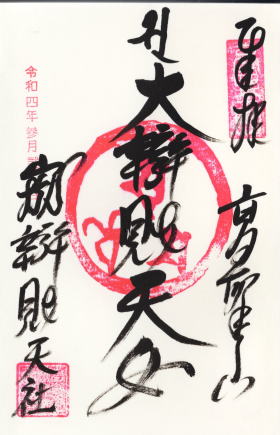 奉拝
高野山
大辯財天女
令和四年参月
嶽辯財天社